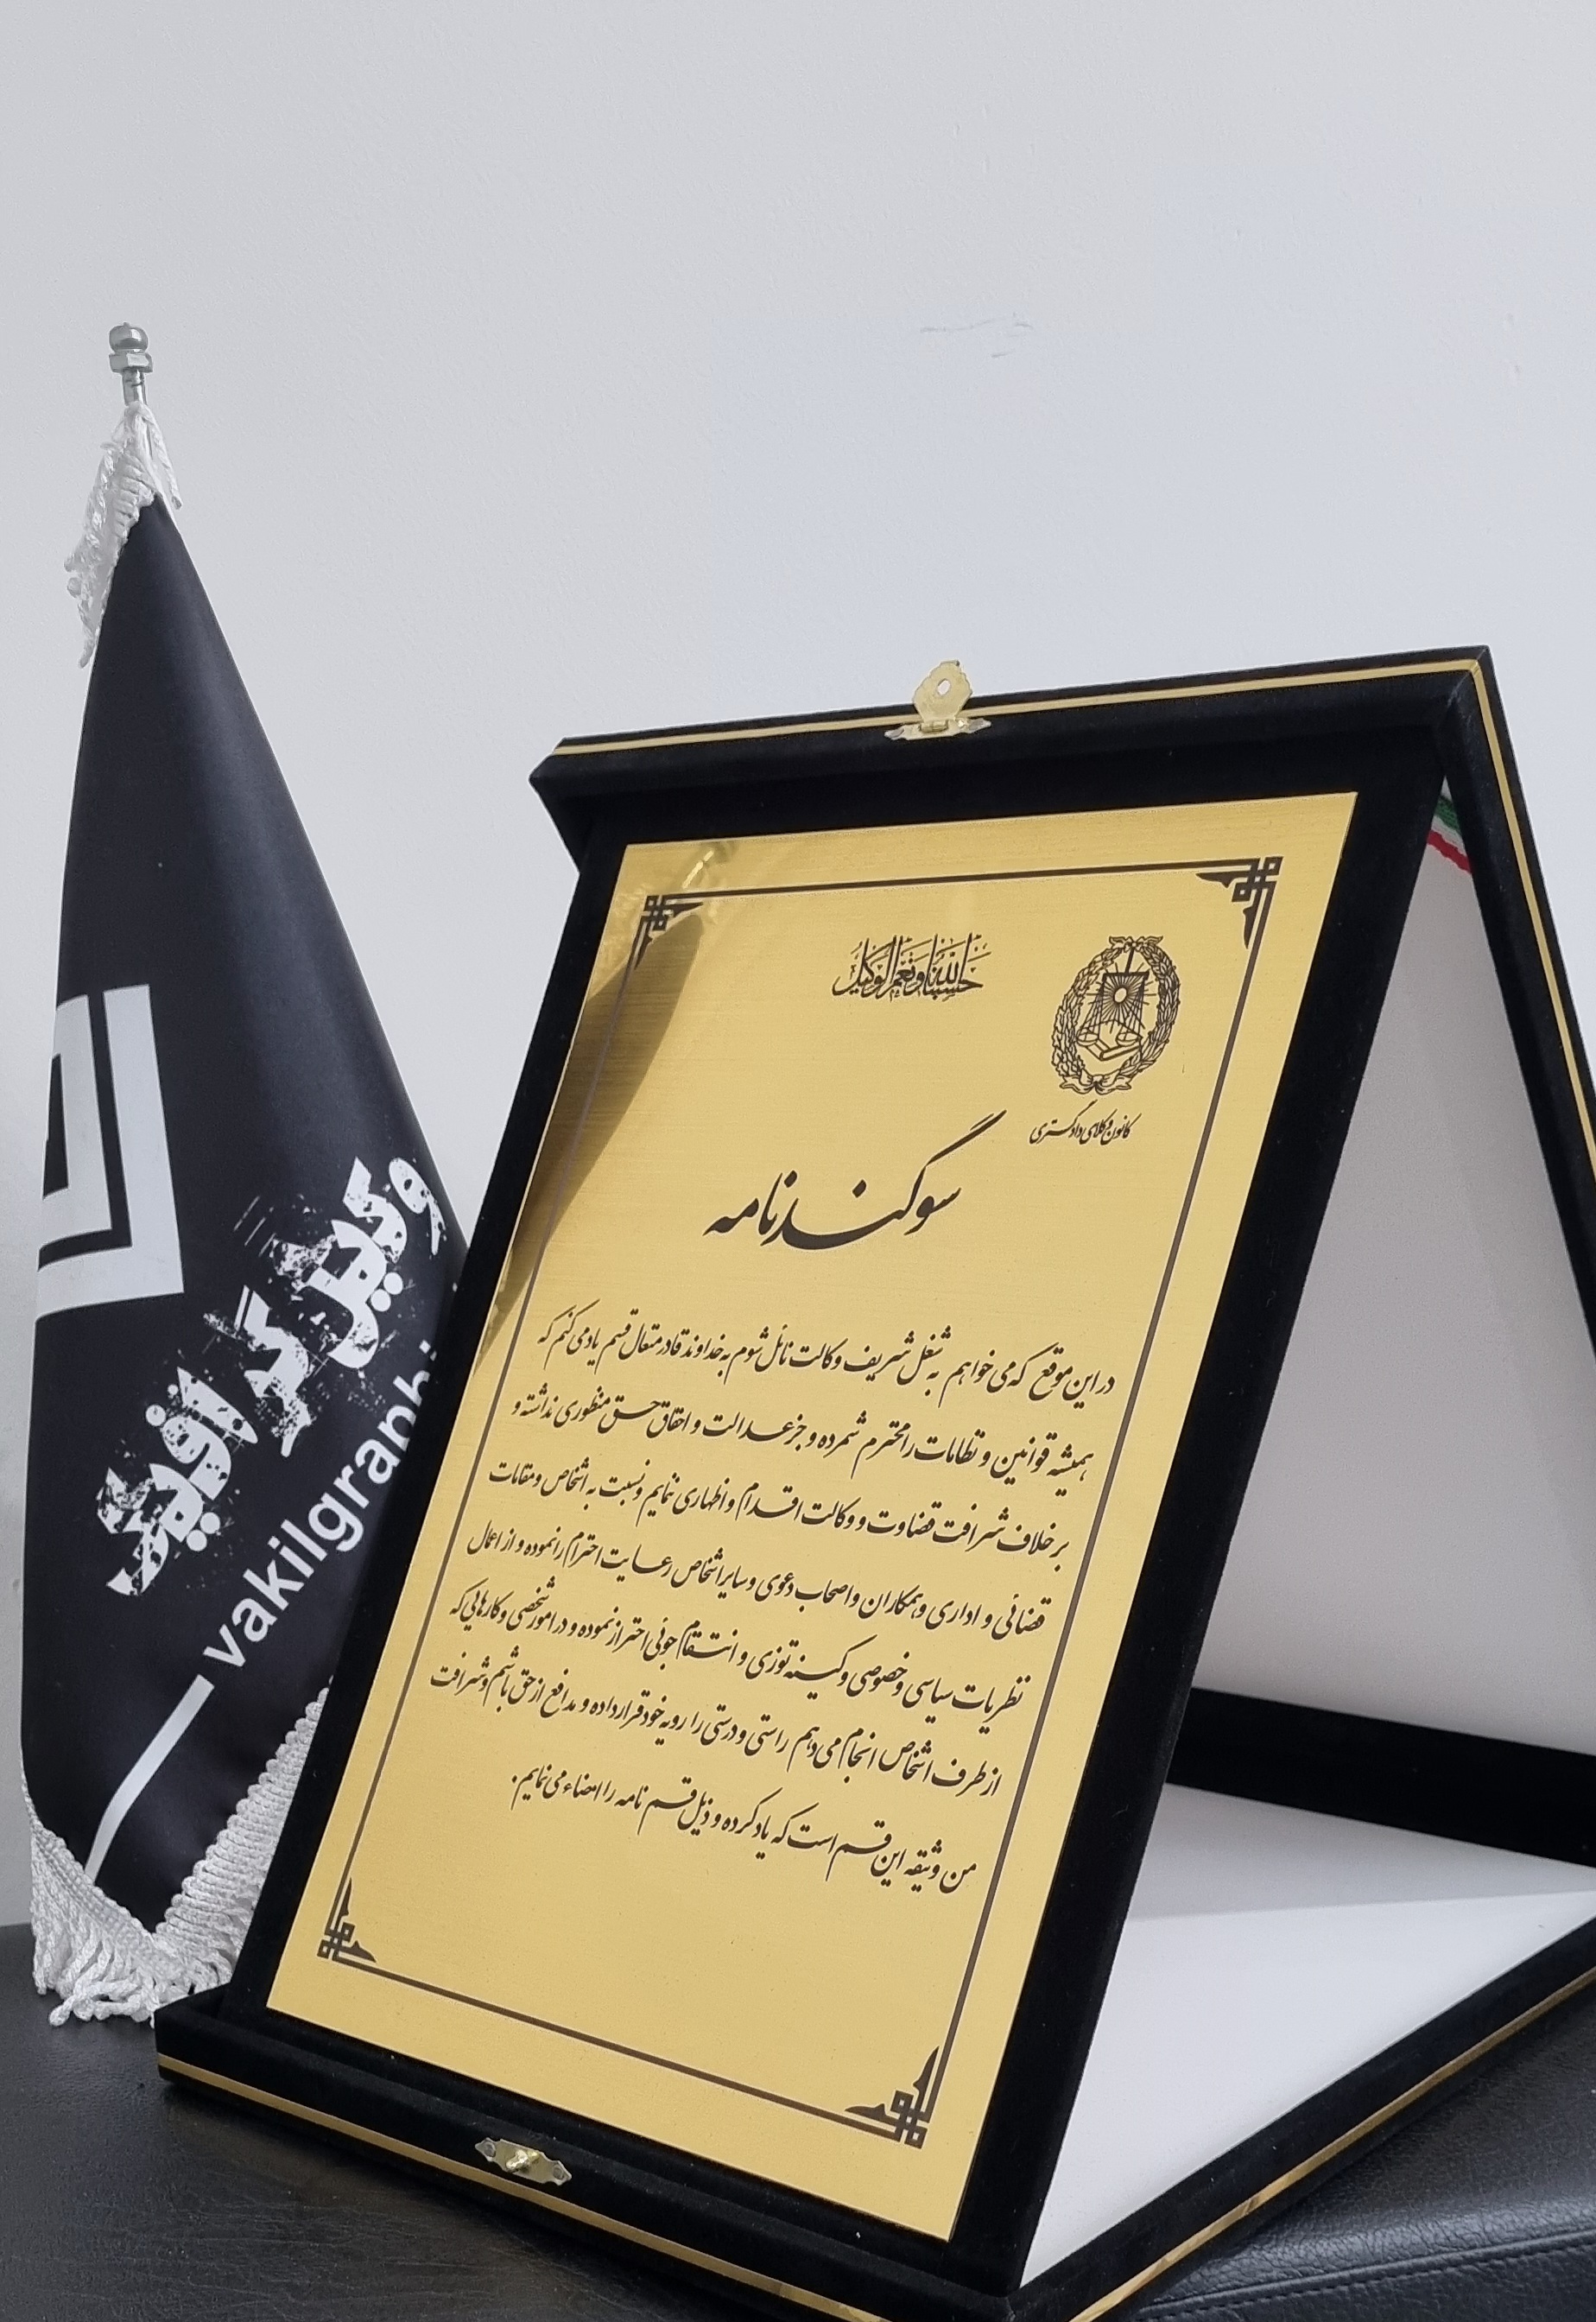 حسبنا الله و نعم الوکیل
کانون وکلای دادگستری
سوگندنامه
در این موقع که می خواهم به شغل شریف وکالت نائل شوم به خداوند قادر متعال قسم یاد می کنم که
همیشه قوانین و نظامات را محترم شمرده و جز عدالت و احقاق حق منظوری نداشته و
بر خلاف شرافت قضاوت و وکالت اقدام و اظهاری ننمایم و نسبت به اشخاص و مقامات
قضائی و اداری و همکاران و اصحاب دعوی و سایر اشخاص رعایت احترام را نموده و از اعمال
نظریات سیاسی و خصوصی و کینه توزی و انتقام جوئی احتراز نموده و در امور شخصی و کارهایی که
از طرف اشخاص انجام می دهم راستی و درستی را رویه خود قرار داده و مدافع از حق باشم و شرافت
من وثیقه این قسم است که یاد کرده و ذیل قسم نامه را امضاء می نمایم.
وکیل گرافیک
vakilgraphi